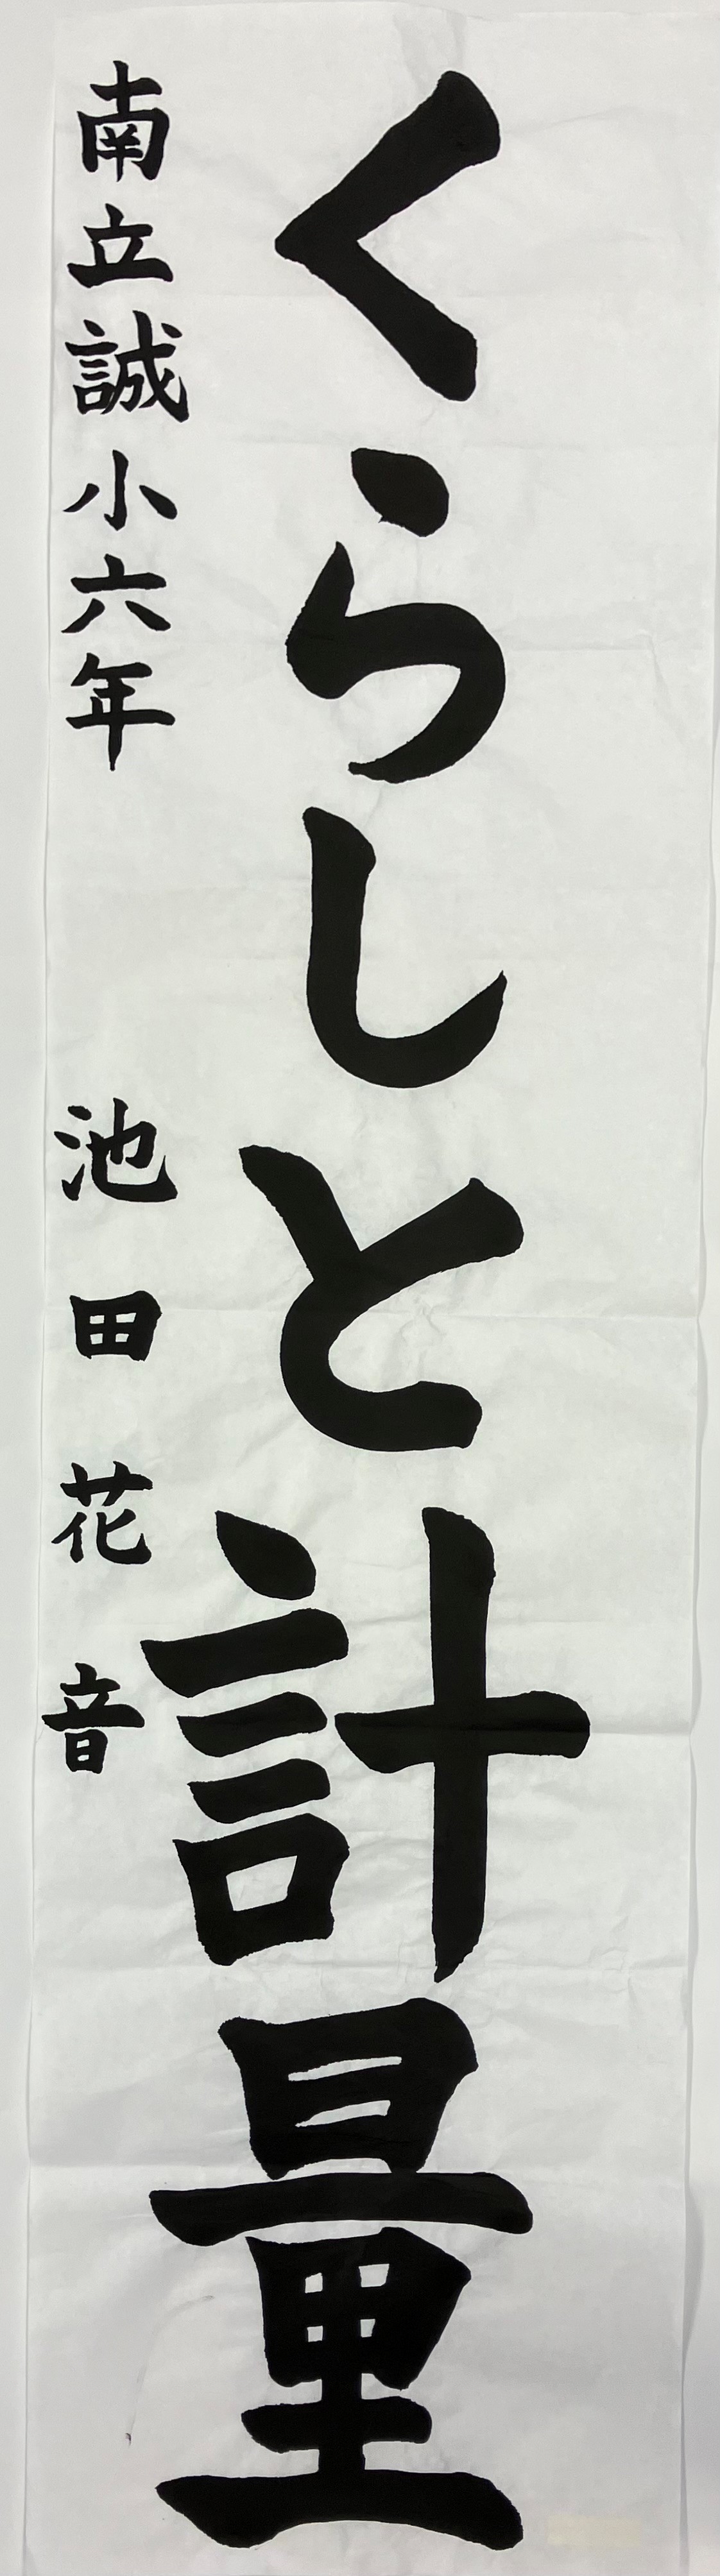 くらしと計量
南立誠小六年 池田花音